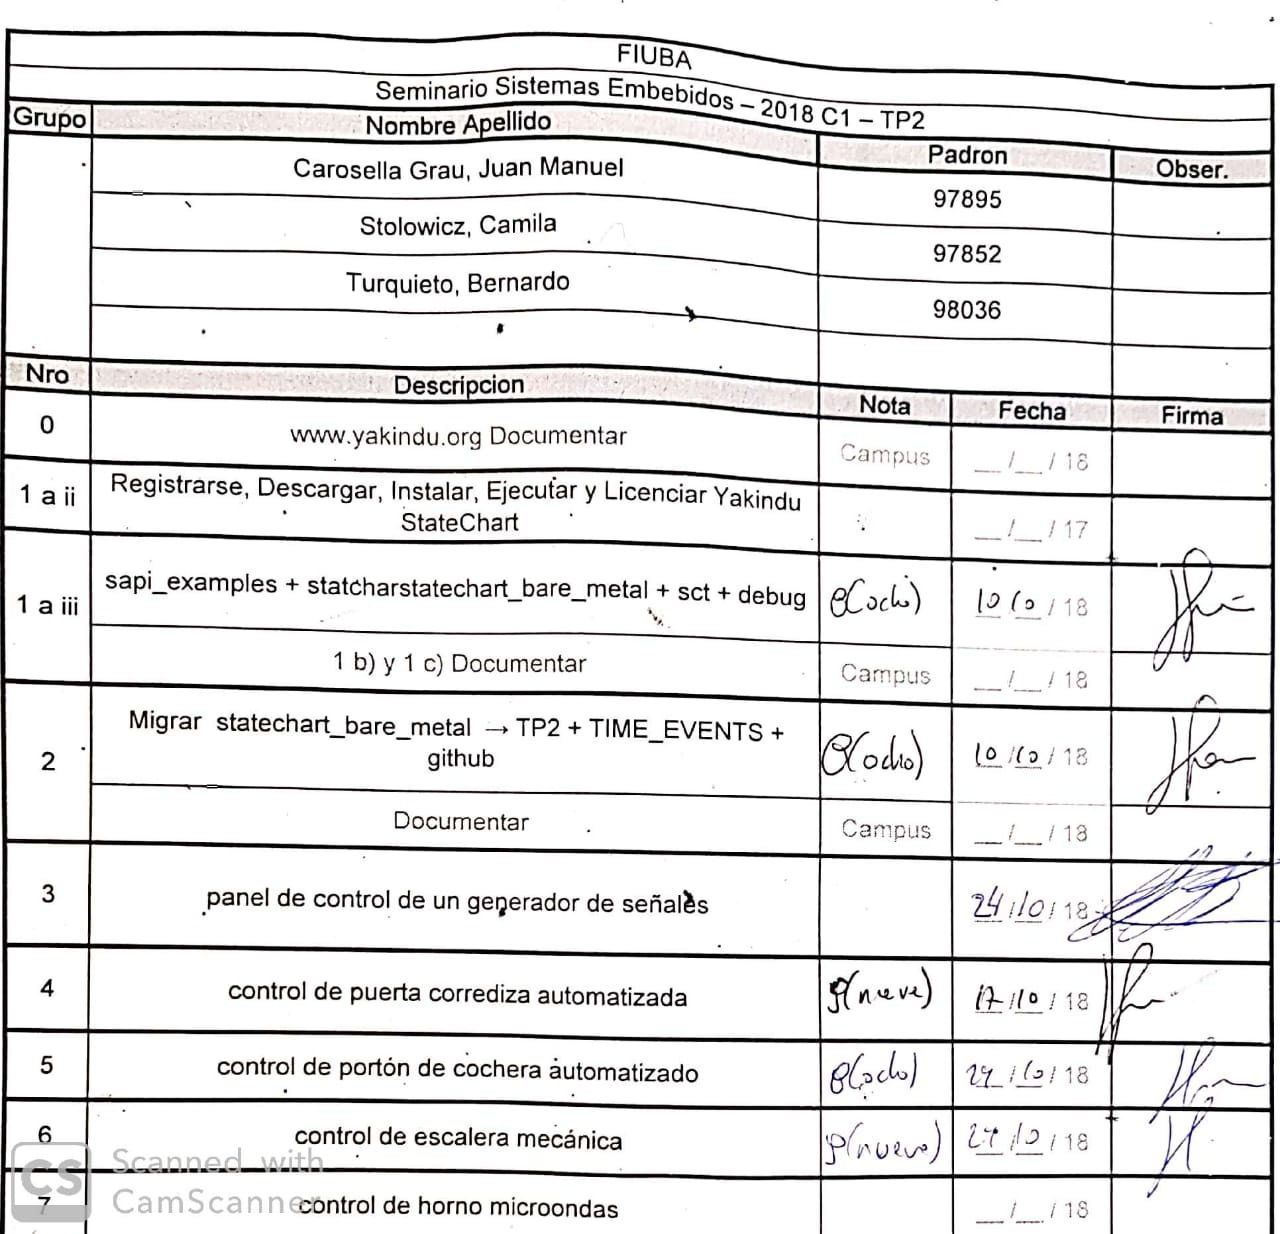 FIUBA
Seminario Sistemas Embebidos – 2018 C1 – TP2
Grupo Nombre Apellido Padron Obser.
Carosella Grau, Juan Manuel 97895
Stolowicz, Camila 97852
Turquieto, Bernardo 98036
Nro Descripcion Nota Fecha Firma
0 www.yakindu.org Documentar Campus __/__/18
1 a ii Registrarse, Descargar, Instalar, Ejecutar y Licenciar Yakindu
StateChart __/__/17
1 a iii sapi_examples + statcharstatechart_bare_metal + sct + debug 8(ocho) 10/10/18
1 b) y 1 c) Documentar Campus __/__/18
2 Migrar statechart_bare_metal → TP2 + TIME_EVENTS +
github 8(ocho) 10/10/18
Documentar Campus __/__/18
3 panel de control de un generador de señales 24/10/18
4 control de puerta corrediza automatizada 9(nueve) 17/10/18
5 control de portón de cochera automatizado 8(ocho) 24/10/18
6 control de escalera mecánica 9(nueve) 24/10/18
7 control de horno microondas __/__/18
CS Scanned with
CamScanner